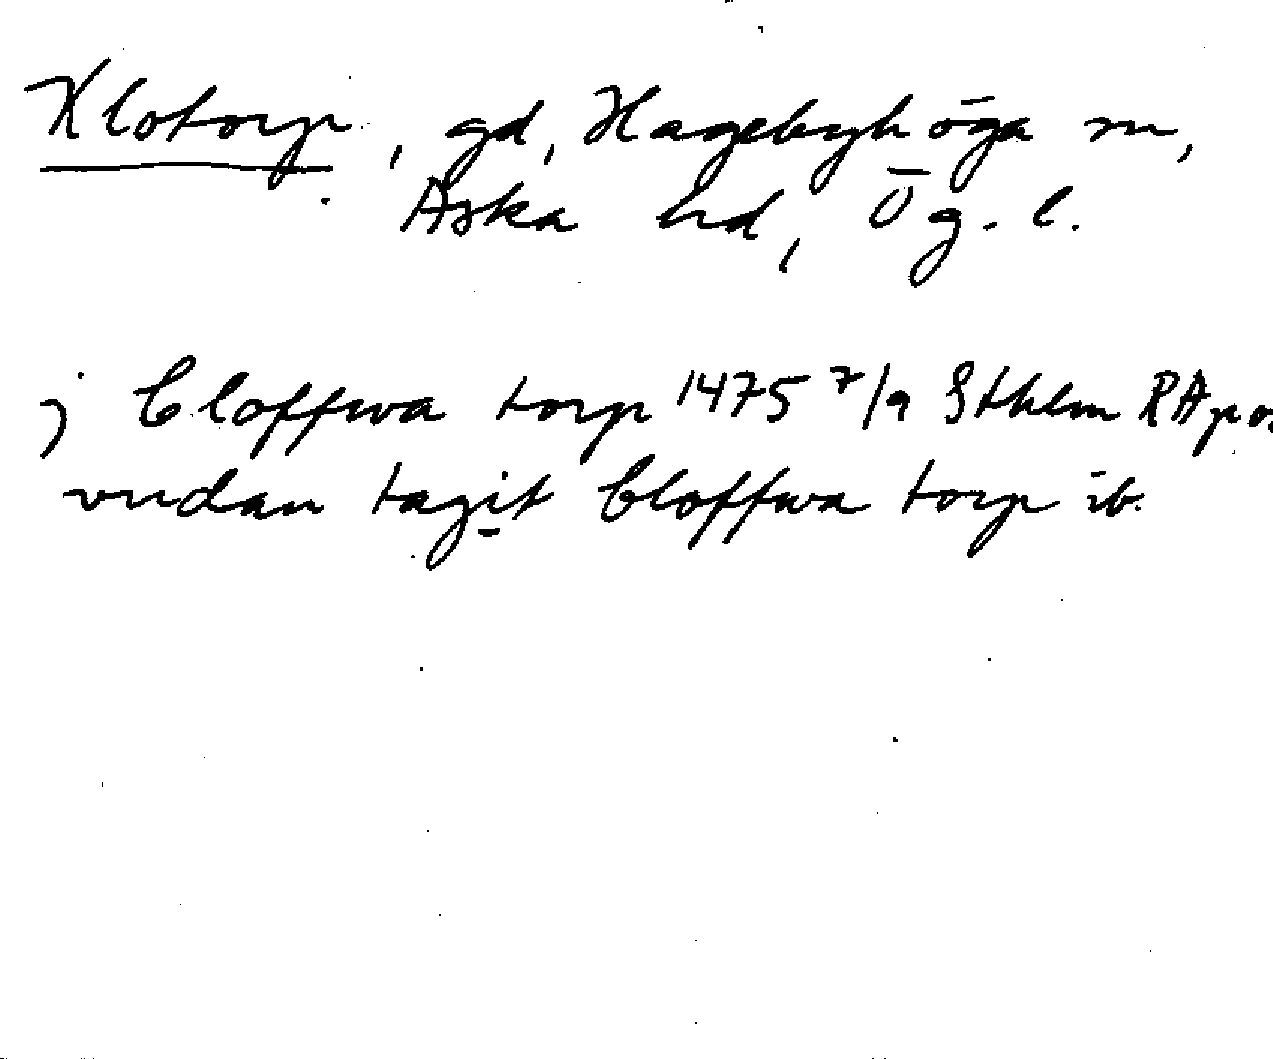 Klotorp, gd, Hagebyhöga sn,
Aska hd, Ög. l.
j Cloffwa torp 1475 7/9 Sthlm RAp or.
vndan tagit Cloffwa torp ib.